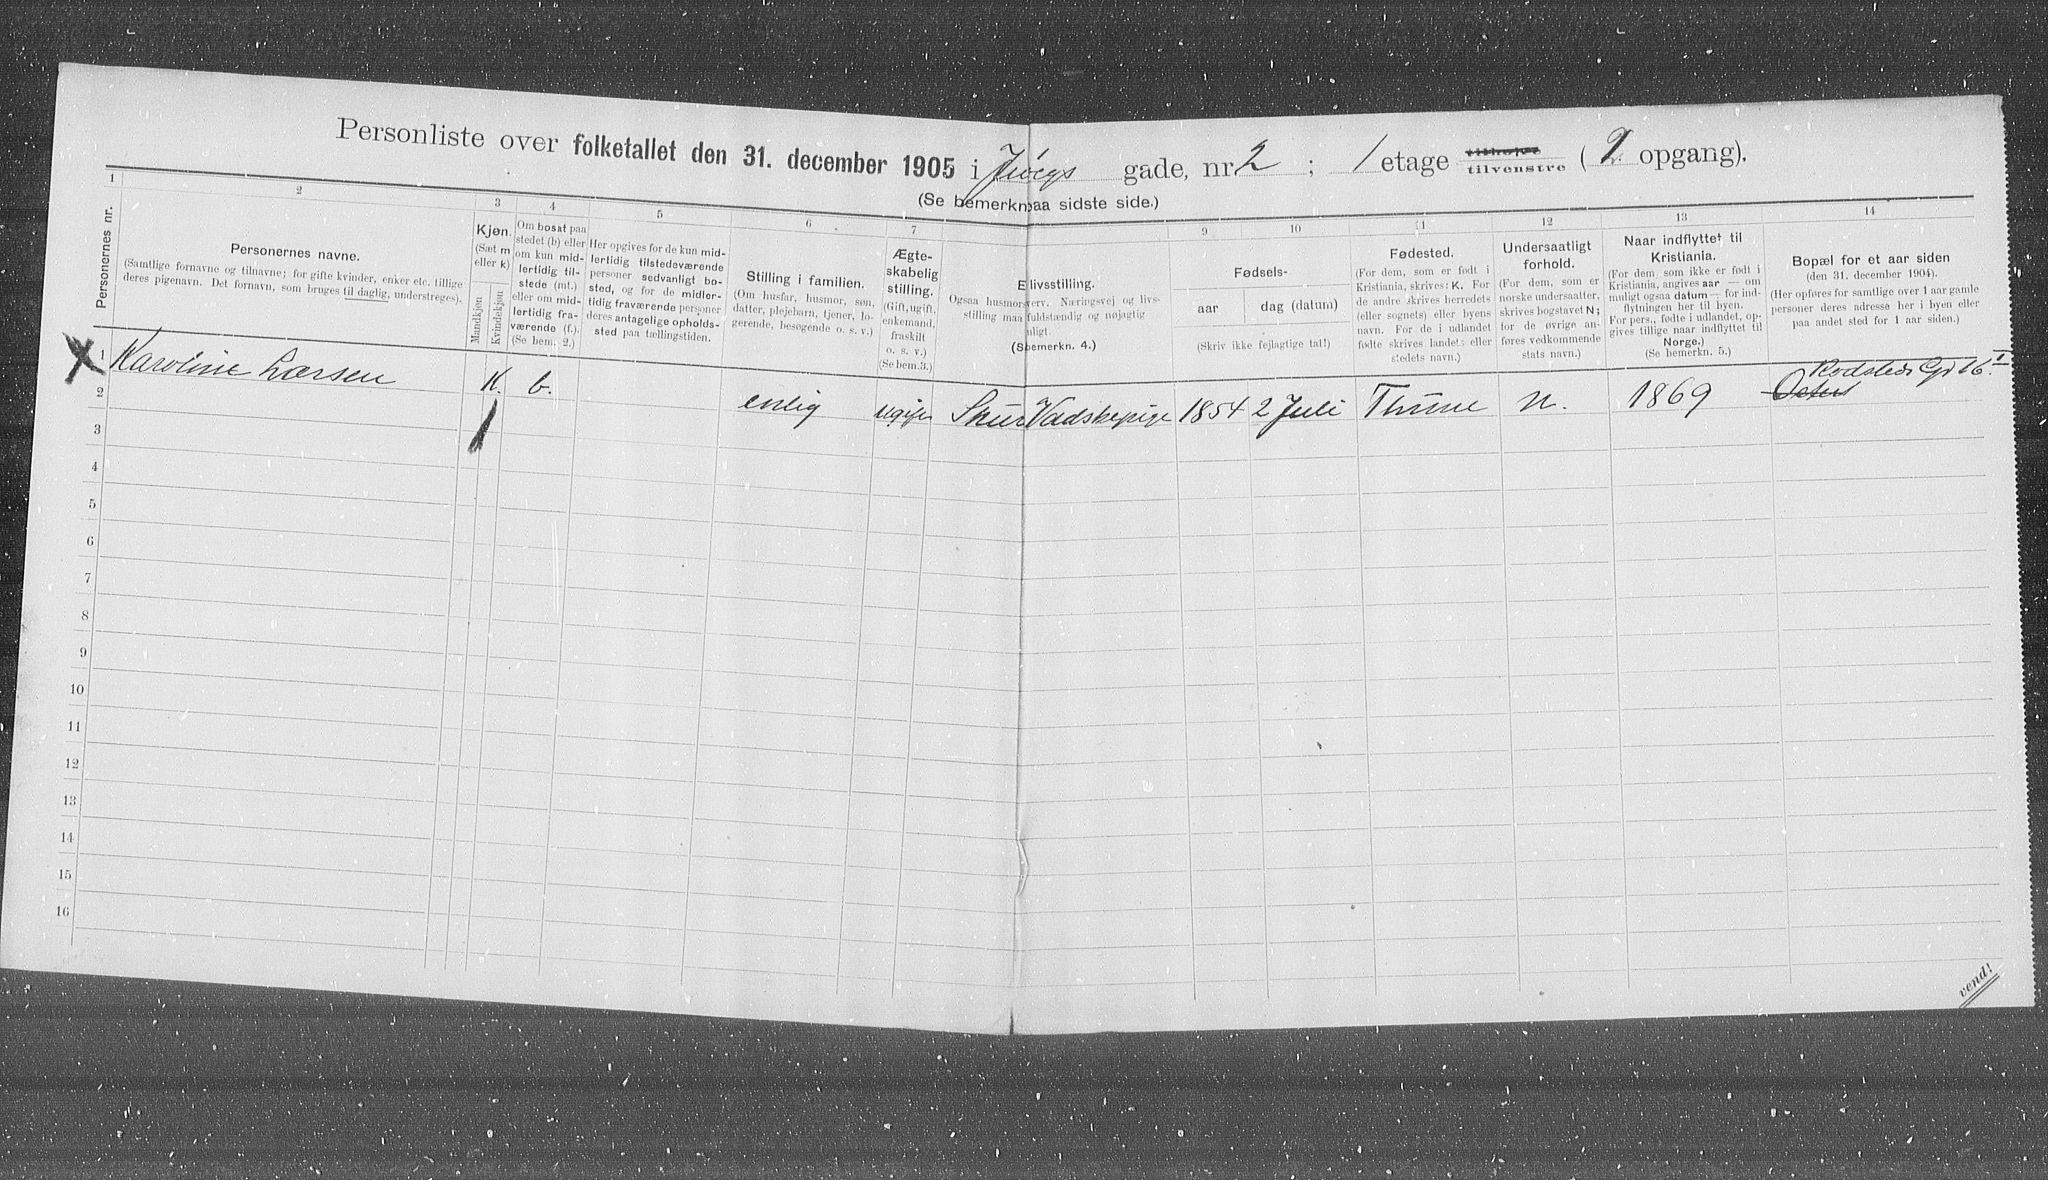 Personliste over folketallet den 31. december 1905 i gade, nr. 2 ; 1 etage tilvenstre (2 opgang).
(Se bemerkn. paa sidste side.)
1 2 3 4 5 6 7 9 10 11 12 13 14
Personernes nr.
Personernes navne.
(Samtlige fornavne og tilnavne; for gifte kvinder, enker etc. tillige
deres pigenavn. Det fornavn, som bruges til daglig, understreges).
Kjøn.
(Sæt m
eller k)
Mandkjøn
Kvindekjøn
Om bosat paa
stedet (b) eller
om kun mid-
lertidig til-
stede (mt.)
eller om mid-
lertidig fra-
værende (f.).
(Se bem. 2.)
Her opgives for de kun mid-
lertidig tilstedeværende
personer sedvanligt bo-
sted, og for de midler-
tidig fraværende personer
deres antagelige opholds-
sted paa tællingstiden.
Stilling i familien.
(Om husfar, husmor, søn,
datter, plejebarn, tjener, lo-
gerende, besøgende o. s. v.)
Ægte-
skabelig
stilling.
(Gift, ugift,
enkemand,
fraskilt
o. s. v.)
(Se bem. 3.)
E livsstilling.
Ogsaa husmors erv. Næringsvej og livs-
stilling maa fuldstændig og nøjagtig
uligt.
(S bemerkn. 4.)
Fødsels-
aar
dag (datum)
(Skriv ikke fejlagtige tal!)
Fødested.
(For dem, som er født i
Kristiania, skrives: K. For
de andre skrives herredets
(eller sognets) eller byens
navn. For de i udlandet
fødte skrives landets eller
stedets navn.)
Undersaatligt
forhold.
(For dem, som er
norske undersaatter,
skrives bogstavet N;
for de øvrige an-
føres vedkommende
stats navn.)
Naar indflyttet til
Kristiania.
(For dem, som ikke er født i
Kristiania, angives aar — om
muligt ogsaa datum — for ind-
flytningen her til byen.
For pers., fødte i udlandet, op-
gives tillige naar indflyttet til
Norge.)
(Se bemerkn. 5.)
Bopæl for et aar siden
(den 31. december 1904).
(Her opføres for samtlige over 1 aar gamle
personer deres adresse her i byen eller
paa andet sted for 1 aar siden.)
X 1 Karoline Larsen K. b. enlig ugift Vadskepige 1854 2 Juli Thune N. 1869 Gd 16
2
3
4
5
6
7
8
9
10
11
12
13
14
15
16
vend!